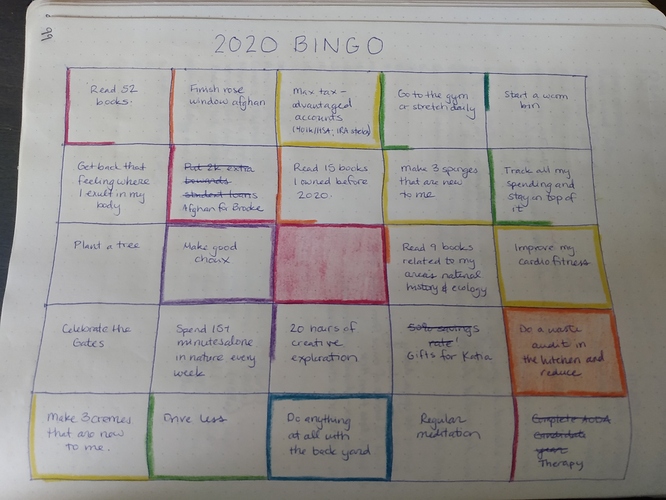 99
2020 BINGO
Read 52
books.
Finish rose
window afghan
Max tax-
advantaged
accounts
(401K/HSA, IRA
Go to the gym
or stretch daily
Start a worm
bin
Get back that
feeling where
I exult in my
body
Put 2k extra
towards
student loans
Afghan for Brooke
Read 15 books
I owned before
2020.
Make 3 sponges
that are new
to me
Track all my
spending and
stay on top of
it
Plant a tree
Make good
choux
Read 9 books
related to my
area's natural
history & ecology
Improve my
cardio fitness
Celebrate the
Gates
Spend 15+
minutes alone
in nature every
week
20 hours of
creative
exploration
50% savings
rate!
Gifts for Katia
Do a waste
audit in
the kitchen and
reduce
Make 3 cremes
that are new
to me.
Drive less
Do anything
at all with
the back yard
Regular
meditation
Complete
Candidate
year
Therapy